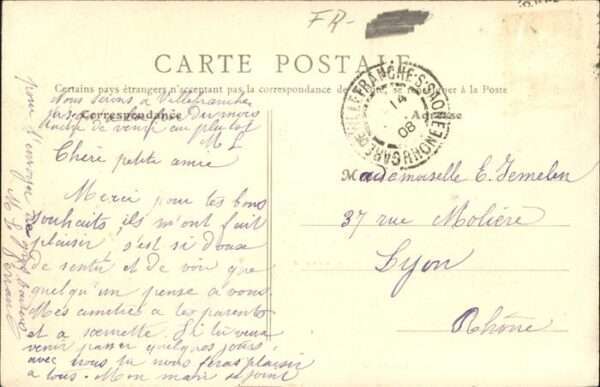 FR-
CARTE POSTALE
Certains pays étrangers n'acceptant pas la correspondance de se renseigner à la Poste
Nous serons à Villefranche
du mois
de venir au plutot
M L
Correspondance
Adresse
VILLEFRANCHE-S-SAONE
14
08
RHONE
GARE DE
Cheré petite amie
Merci pour tes bons
souhaits, ils m'ont fait
plaisir, s'est si doux
de sentir et de voir que
quelqu'un pense a vous
Mes amities a tes parents
et a soeurette. Si tu veux
venir passer quelques jours
avec nous tu nous feras plaisir
a tous. Mon mari se joint
pour t'envoyer de
Mademoiselle E.
37 rue Molière
Lyon
Rhône